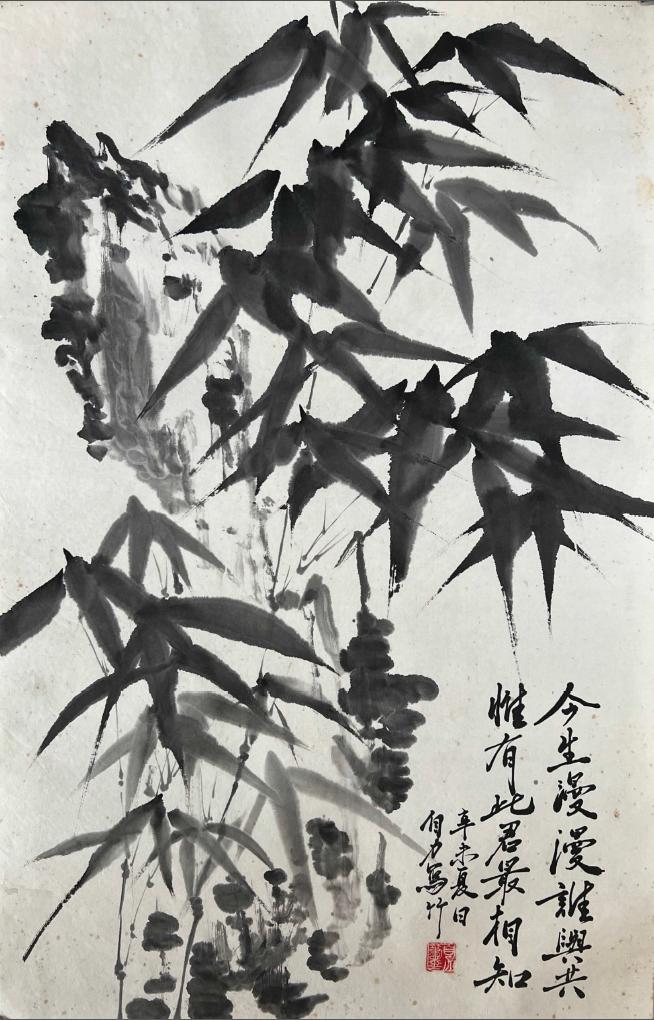 今生漫漫誰與共
惟有此君最相知
辛未夏日
自力寫竹